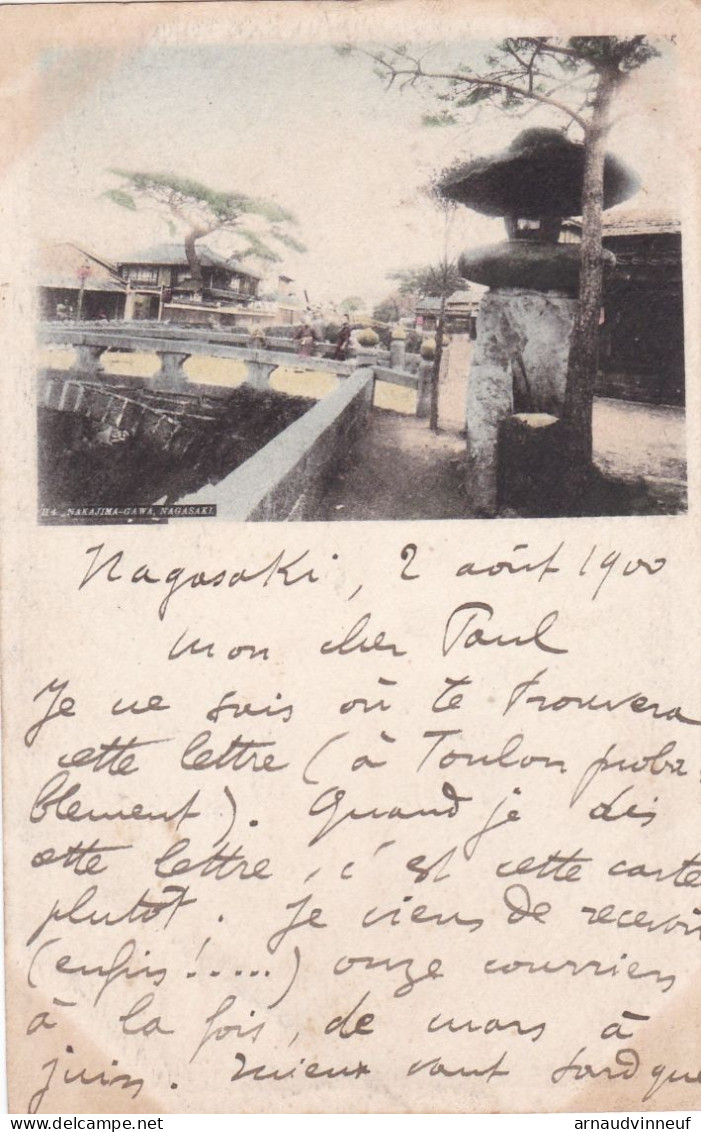 114 NAKAJIMA-GAWA, NAGASAKI.
Nagasaki, 2 août 1900
Mon cher Paul
Je ne sais où te trouvera
cette lettre (à Toulon proba
blement). Quand je dis
cette lettre, c'est cette carte
plutôt. Je viens de recevoir
(enfin!.....) onze courriers
à la fois, de mars à
juin. Mieux vaut tard que
arnaudvinneuf